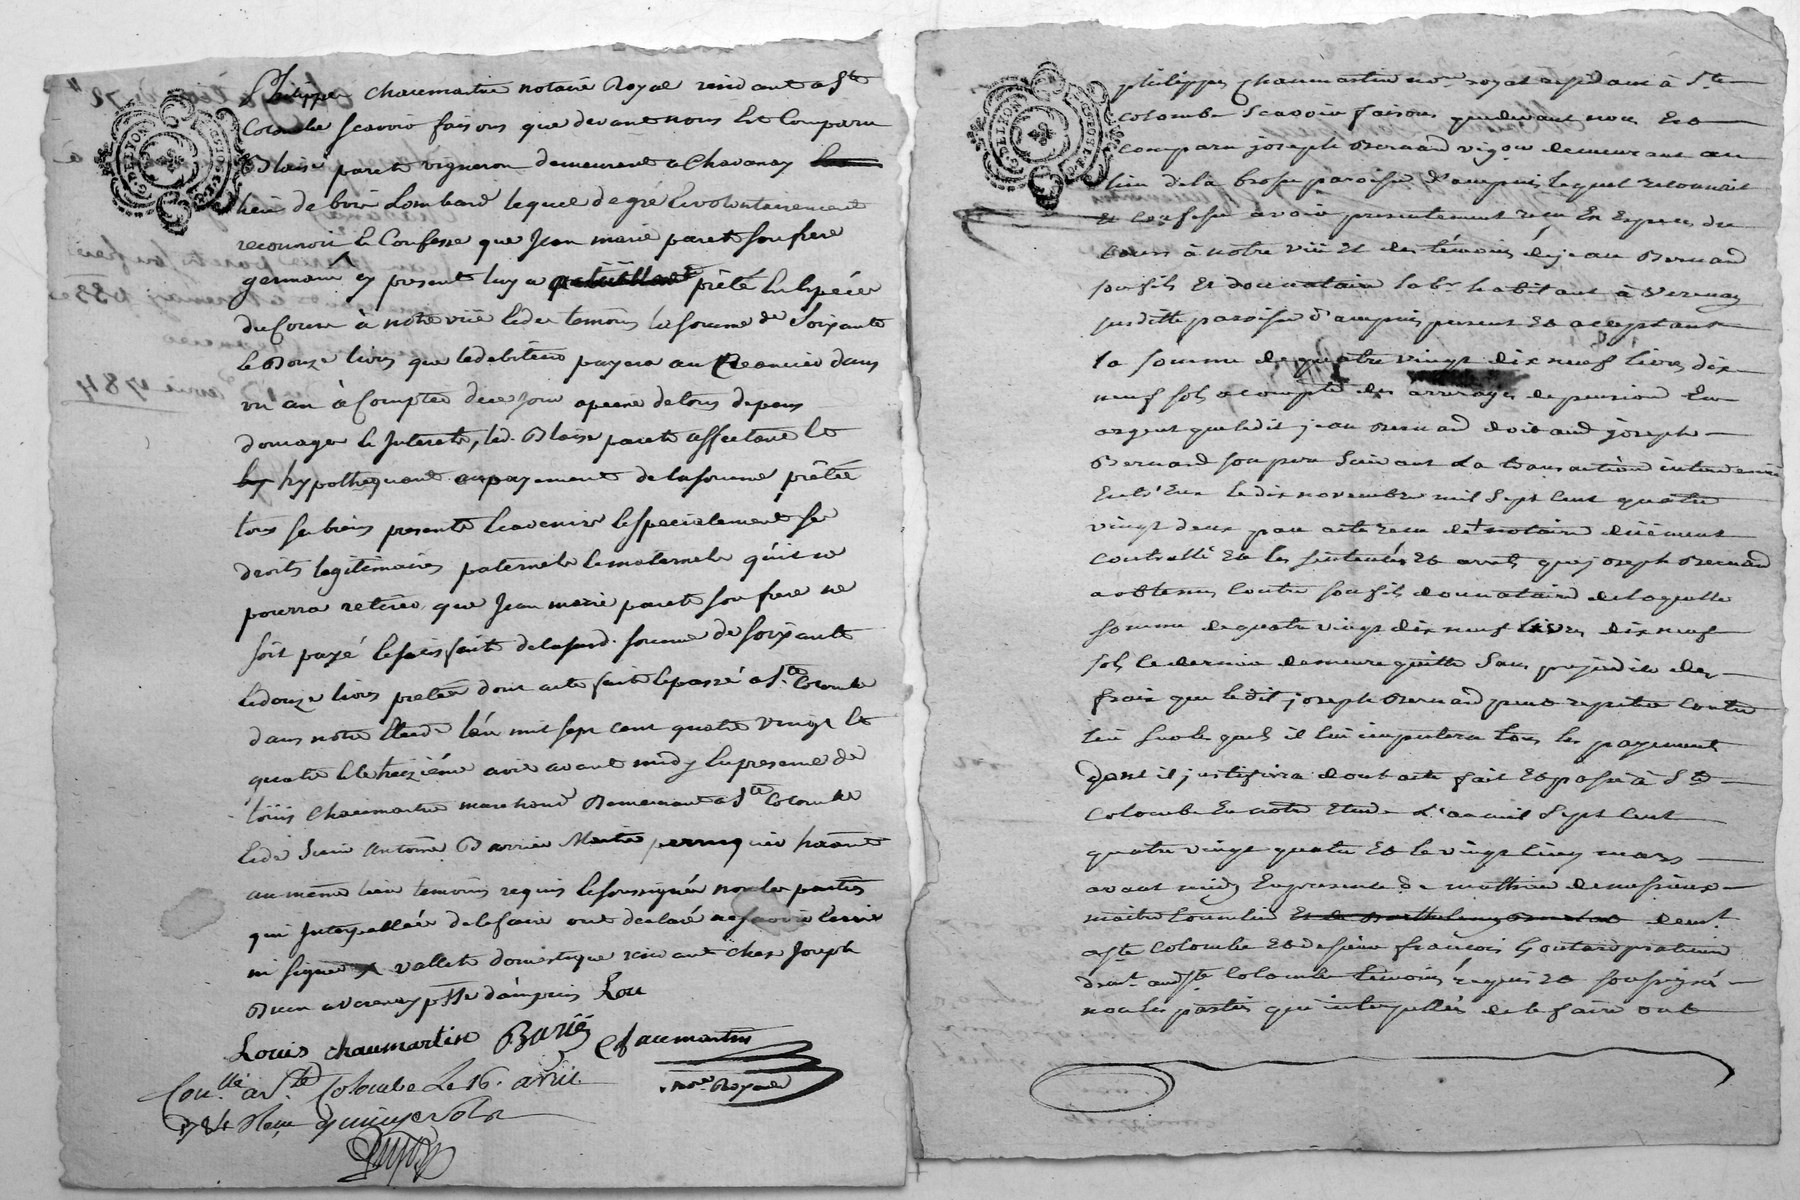 Philippe chaumartin notaire Royal residant a Ste
Colombe scavoir faisons que devant nous Est Comparu
Blaise paret vigneron demeurant a Chavanay
lieu de bois Lombard lequel de gré & volontairement
reconnoit & Confesse que Jean marie paret son frere
germain cy present luy a prêté En Espèces
du Cours à notre viie & des temoins la somme de Soixante
& Douze livres que le debiteur payera au Creancier dans
un an à Compter de ce jour a peine de tous depens
domages & Interets, led. Blaise paret affectant et
hypothequant au payement de la somme prêtée
tous ses biens presents & avenir & specialement ses
droits legitimaires paternels & maternels qu'il ne
pourra retirer que Jean marie paret son frere ne
soit payé & satisfait de la susd. somme de soixante
& douze livres pretée dont acte fait & passé a Ste Colombe
dans notre Etude l'an mil sept cent quatre vingt et
quatre & le treizième avril avant midy En presence de
Louis Chaumartin marchand Demeurant a Ste Colombe
& de Sieur Antoine Barrier Maitre perruquier
au même lieu temoins requis & soussignés non les parties
qui Interpellées de le faire ont declaré ne scavoir Ecrire
ni signer vallet domestique residant chez Joseph
Buen a verenay psse d'ampuis Lou
Louis chaumartin Barié Chaumartin
nore Royal
Conllé a Ste Colombe Le 16. avril
1784 Reçu quinze sols
philippes chaumartin nore royal residant à Ste
colombe scavoir faisons que devant nous Est
comparu joseph Bernard vigon demeurant au
lieu de la brosse paroisse d'ampuis lequel reconnoit
Et confesse avoir presentement reçu En Especes du
cours à notre viie Et des témoins de jean Bernard
son fils Et donnataire labr habitant à Verenay
susditte paroisse d'ampuis present Et acceptant
la somme de quatre vingt dix neuf livres dix
neuf sols acompte des arrerages de pension En
argent que ledit jean Bernard doit aud joseph
Bernard son pere suivant la transaction intervenüe
Entr'Eux le dix novembre mil sept cent quatre
vingt deux par acte reçu dt notaire düement
controllé Et les sentences Et arrets que joseph Bernard
a obtenus contre son fils donnataire de laquelle
somme de quatre vingt dix neuf livres dix neuf
sols le dernier demeure quitte sans prejudice des
frais que ledit joseph Bernard peut repeter contre
lui sur lesquels il lui imputera tous les payements
dont il justifiera dont acte fait Et passé à Ste
colombe En notre Etude L'an mil sept cent
quatre vingt quatre Et le vingt cinq mars
avant midy En presence de mathieu demeszieux
maitre Et de Barthelemy demt
a Ste Colombe Et de sieur françois Goutard praticien
demt audt Ste Colombe témoins requis Et soussignés
non les parties qui interpellées de le faire ont